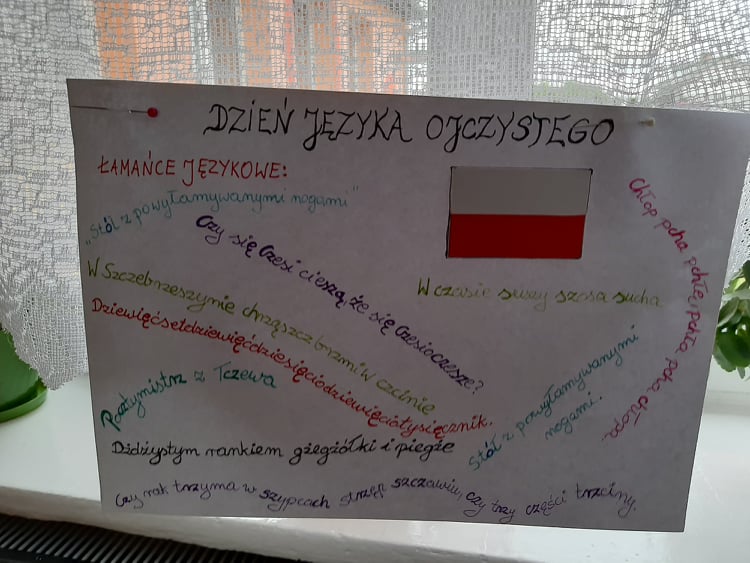 DZIEŃ JĘZYKA OJCZYSTEGO
ŁAMAŃCE JĘZYKOWE:
„Stół z powyłamywanymi nogami"
Czy się Czesi cieszą, że się Czesio czesze?
W Szczebrzeszynie chrząszcz brzmi w trzcinie
Dziewięćsetdziewięćdziesięciodziewięciotysięcznik.
Poztymistrz z Tczewa
Dżdżystym rankiem gżegżółki i piegże
Czy rak trzyma w szypcach strzęp szczawiu, czy trzy części trzciny.
W czasie suszy szosa sucha
Stół z powyłamywanymi
nogami.
Chłop pcha pchłę, pchła pcha chłopa.